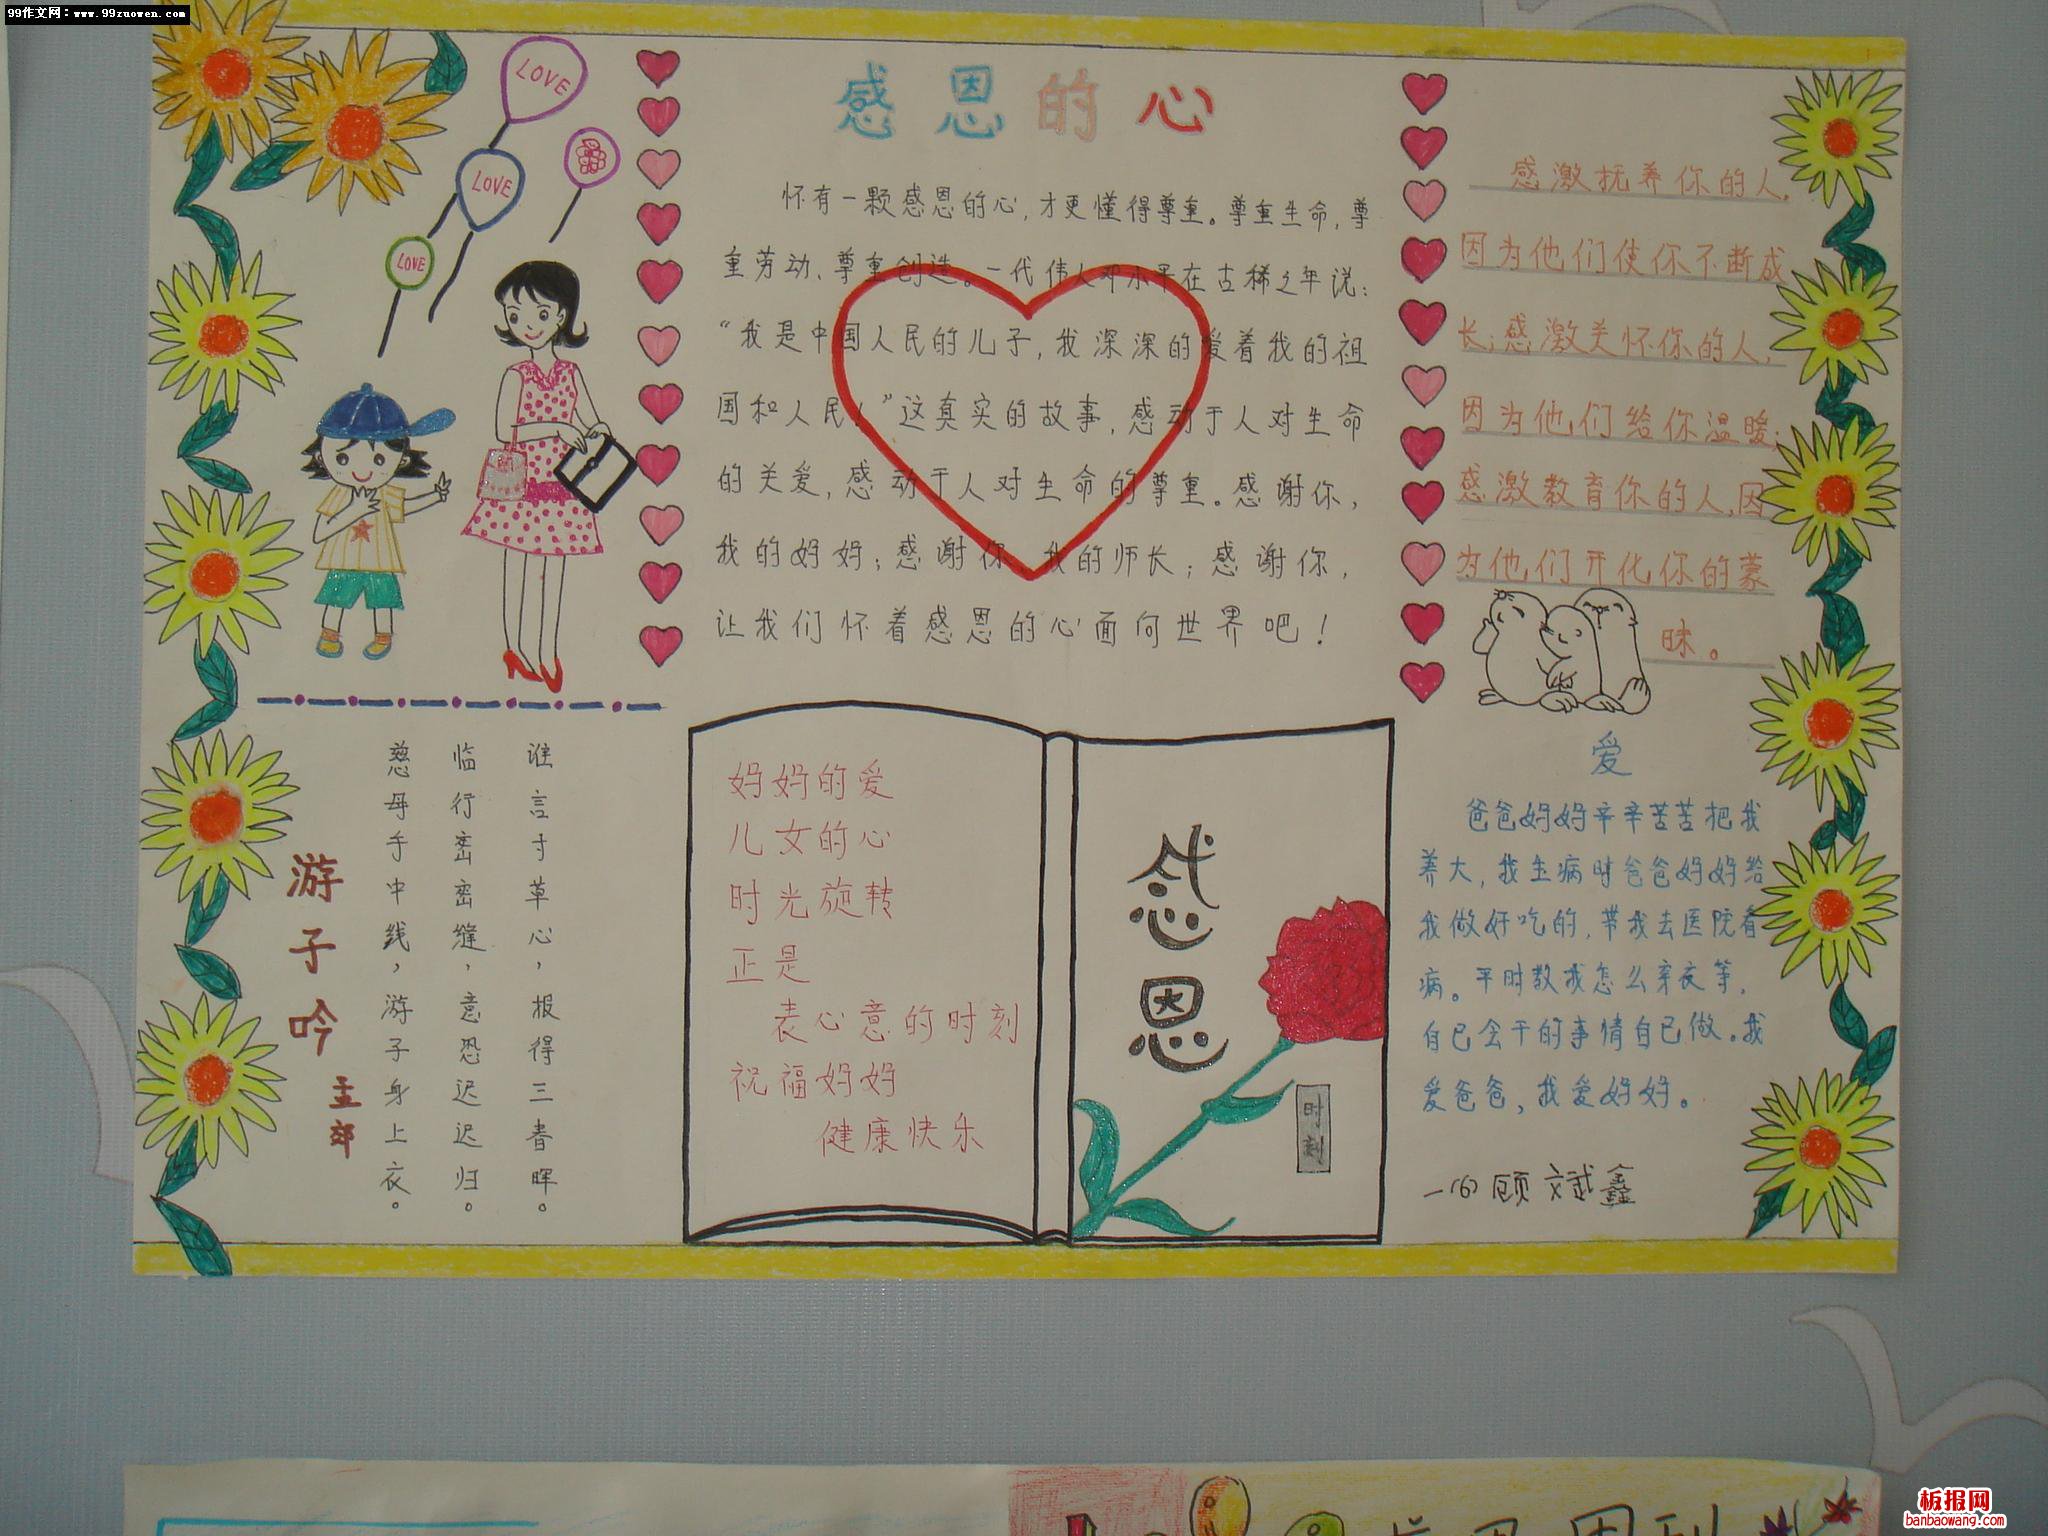 99作文网：www.99zuowen.com
LOVE
LOVE
LOVE
感恩的心
怀有一颗感恩的心，才更懂得尊重。尊重生命，尊
重劳动、尊重创造。一代伟人邓小平在古稀之年说：
“我是中国人民的儿子，我深深的爱着我的祖
国和人民！”这真实的故事，感动于人对生命
的关爱，感动于人对生命的尊重。感谢你，
我的妈妈；感谢你，我的师长；感谢你，
让我们怀着感恩的心面向世界吧！
感激抚养你的人，
因为他们使你不断成
长；感激关怀你的人，
因为他们给你温暖；
感激教育你的人，因
为他们开化你的蒙
昧。
游子吟
孟郊
慈母手中线，游子身上衣。
临行密密缝，意恐迟迟归。
谁言寸草心，报得三春晖。
妈妈的爱
儿女的心
时光旋转
正是
表心意的时刻
祝福妈妈
健康快乐
感恩
时刻
爱
爸爸妈妈辛辛苦苦把我
养大，我生病时爸爸妈妈给
我做好吃的，带我去医院看
病。平时教我怎么穿衣等，
自已会干的事情自已做。我
爱爸爸，我爱妈妈。
一(6)顾斌鑫
板报网
banbaowang.com